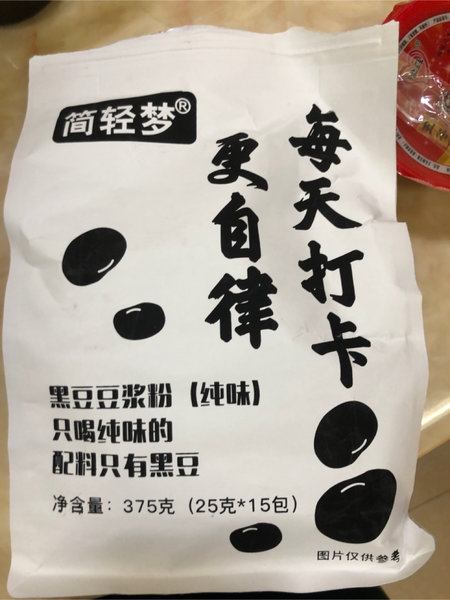 简轻梦®
每天打卡
更自律
黑豆豆浆粉（纯味）
只喝纯味的
配料只有黑豆
净含量：375克（25克*15包）
图片仅供参考